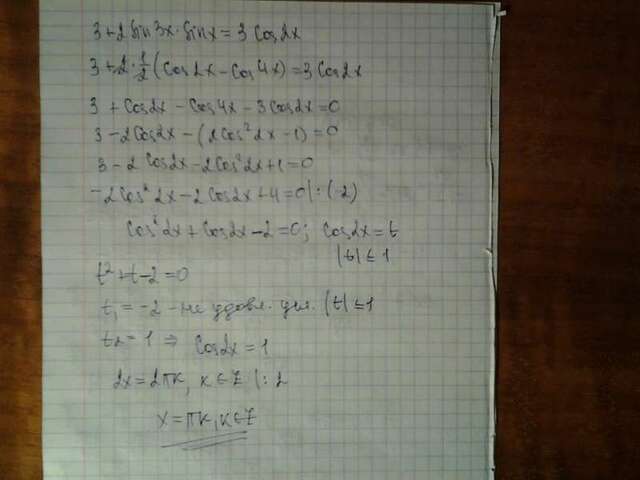 3+2Sin3x·Sinx=3Cos2x
3+2·1/2(Cos2x-Cos4x)=3Cos2x
3+Cos2x-Cos4x-3Cos2x=0
3-2Cos2x-(2Cos²2x-1)=0
3-2Cos2x-2Cos²2x+1=0
-2Cos²2x-2Cos2x+4=0|:(-2)
Cos²2x+Cos2x-2=0; Cos2x=t
|t|≤1
t²+t-2=0
t₁=-2-не удовл. усл. |t|≤1
t₂=1 ⇒ Cos2x=1
2x=2πк, к∈Z |:2
x=πк, к∈Z